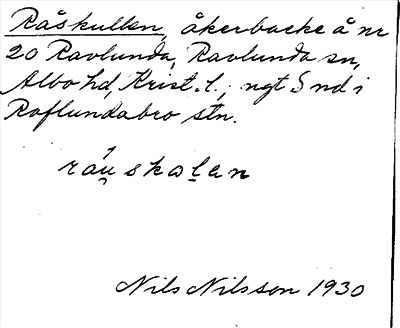 Råskullen, åkerbacke å nr
20 Ravlunda, Ravlunda sn,
Albo hd, Krist. l., ngt S nd i
Raflundabro stn.
Nils Nilsson 1930